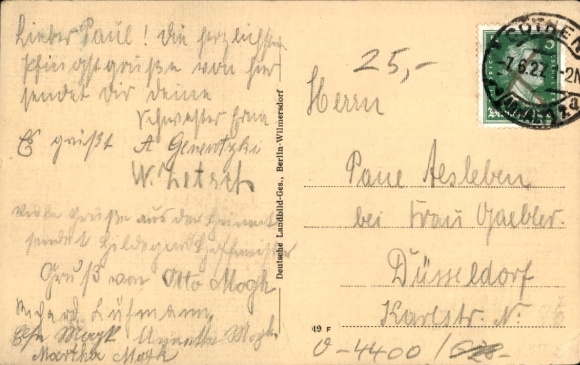 Lieber Paul! Die herzlichsten
Pfingstgrüße von hier
sendet dir deine
Schwester Erna
Es grüßt A
W. Letsch
Viele Grüße aus der Heimat
sendet Hildegard
Gruß von Otto Mogk
Richard Luhmann
Mogk Annette Mogk
Martha Mogk
Deutsche Landbild-Ges., Berlin-Wilmersdorf
49 F
25,-
CÖTHEN
-7.6.27. -2N
(ANHALT) 2a
Herrn
Paul Aesleben
bei Frau Gaebler
Düsseldorf
Karlstr. N.
0-4400/